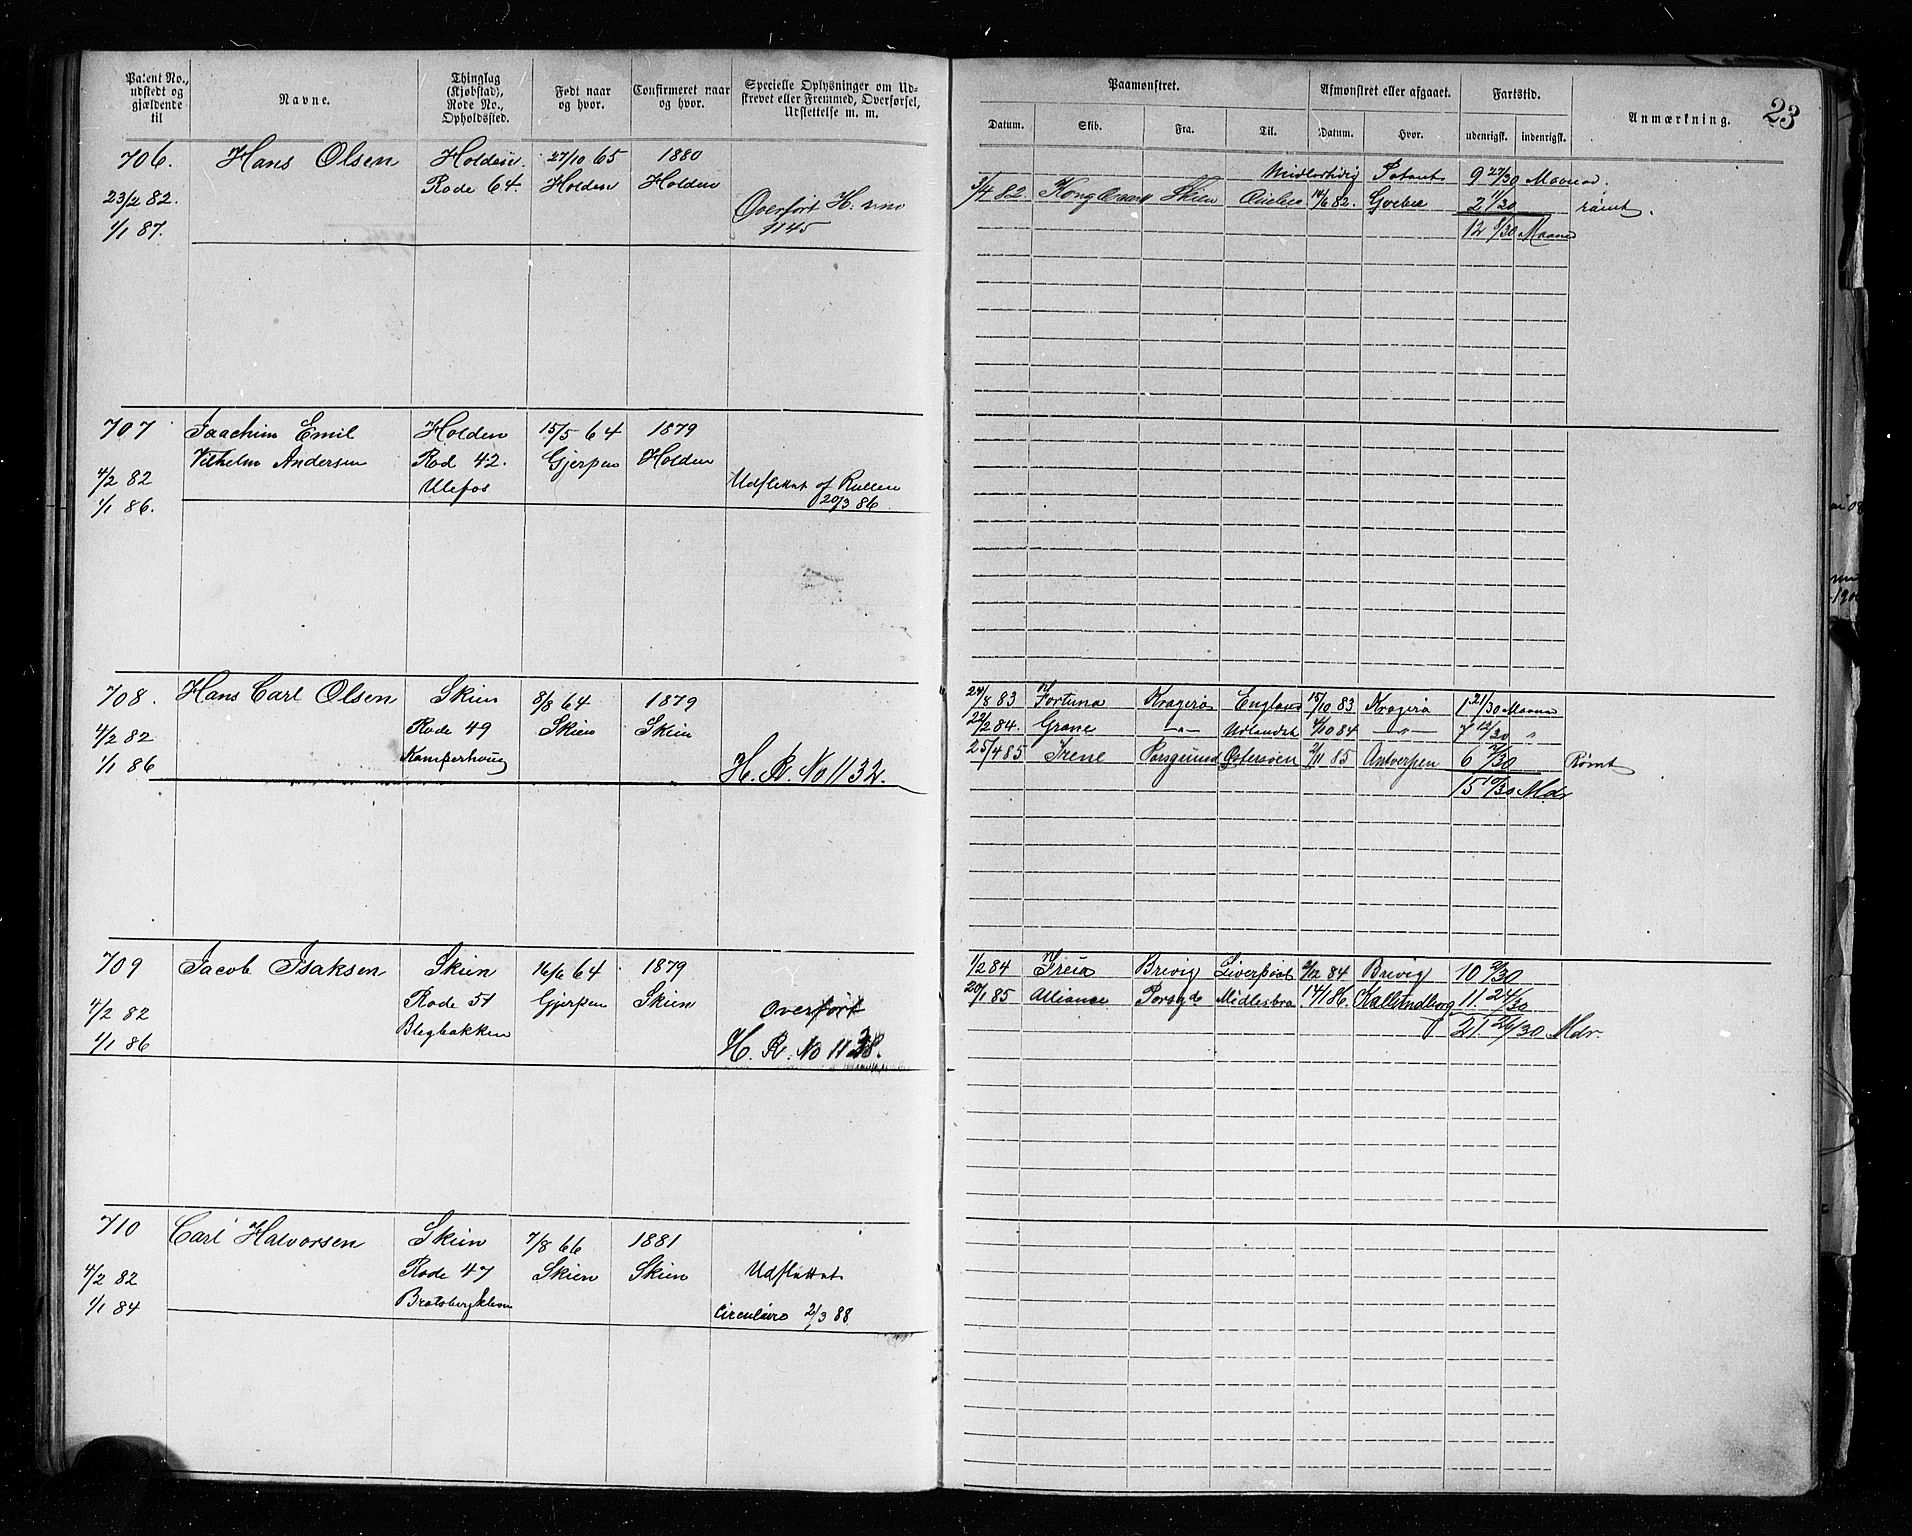 Patent No., udstedt og gjældende til
Navne.
Thinglag (Kjøbstad), Rode No., Opholdssted.
Født naar og hvor.
Confirmeret naar og hvor.
Specielle Oplysninger om Udstrevet eller Fremmed, Overførsel, Udslettelse m. m.
Paamønstret.
Afmønstret eller afgaaet.
Fartstid.
Anmærkning.
23
Datum. Skib. Fra. Til. Datum. Hvor. udenrigsk. indenrigsk.
706. Hans Olsen Holden 27/10 65 1880
Rode 64. Holden Holden
23/2 82. Overført H. r. no
1/1 87. 1145
Midlertidig Patent 9 27/30 Maaned.
3/4 82. Skien 14/6 82. 2 11/30 rømt.
12 8/30 Maaned
707 Joachim Emil Holden 15/5 64 1879
Vilhelm Andersen Rod 42. Gjerpen Holden
4/2 82 Ulefos Udslettet af Rullen
1/1 86. 20/3 86
708. Hans Carl Olsen Skien 8/8 64 1879
Rode 49 Skien Skien
4/2 82 Kamperhoug
1/1 86 H. R. No 1132.
24/8 83 Fortuna Kragerø England 15/10 83 Kragerø 1 21/30 Maane
22/2 84. Grane -"- Udlandet 4/10 84 -"- 7 12/30 "
25/4 85 Irene Porsgrund Østersøen 2/11 85 Antverpen 6 Rømt
15 10/30 Mdr
709 Jacob Isaksen Skien 16/6 64 1879
Rode 51 Gjerpen Skien
4/2 82 Blegbakken Overført
1/1 86 H. R. No 1138.
1/2 84 Freia Brevig Liverpool 9/12 84 Brevig 10 9/30
20/1 85 Alliance Porsgd Midlesbro 14/1 86. Kallundborg 11. 24/30
21. 26/30 Mdr.
710 Carl Halvorsen Skien 7/8 66 1881
Rode 47 Skien Skien Udslettet
4/2 82 Bratsbergkleven
1/1 84 Circulaire 2/3 88